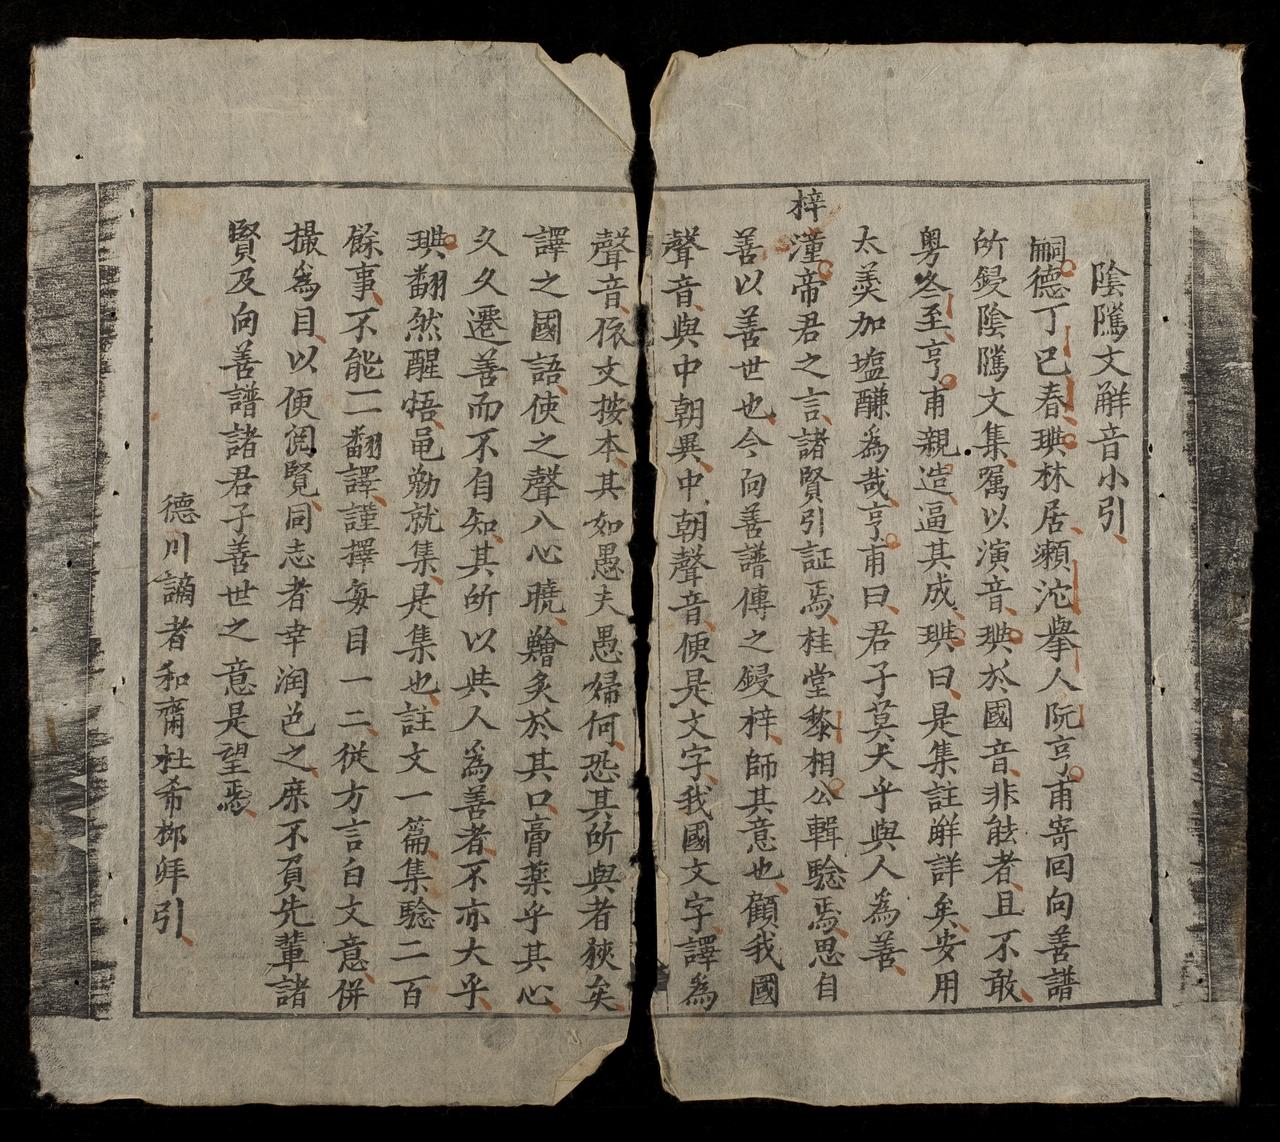 陰隲文解音小引
嗣德丁巳春㻞林居瀬沱擧人阮亨甫寄回向善譜
所鋟陰隲文集囑以演音㻞於國音非能者且不敢
粤冬至亨甫親造逼其成㻞曰是集註觧詳矣安用
太羮加塩醶爲哉亨甫曰君子莫大乎與人為善
梓潼帝君之言諸賢引証焉桂堂黎相公輯驗焉思自
善以善世也今向善譜傳之鋟梓師其意也顧我國
聲音與中朝異中朝聲音便是文字我國文字譯為
聲音依文按本其如愚夫愚婦何恐其所與者狹矣
譯之國語使之聲入心曉鱠炙於其口膏藥乎其心
久久遷善而不自知其所以共人爲善者不亦大乎
㻞翻然醒悟黽勉就集是集也註文一篇集驗二百
餘事不能一一翻譯謹擇每目一二從方言白文意併
撮爲目以便閲覽同志者幸潤色之庶不負先輩諸
賢及向善譜諸君子善世之意是望焉
德川謫者和甫杜希㭲拜引